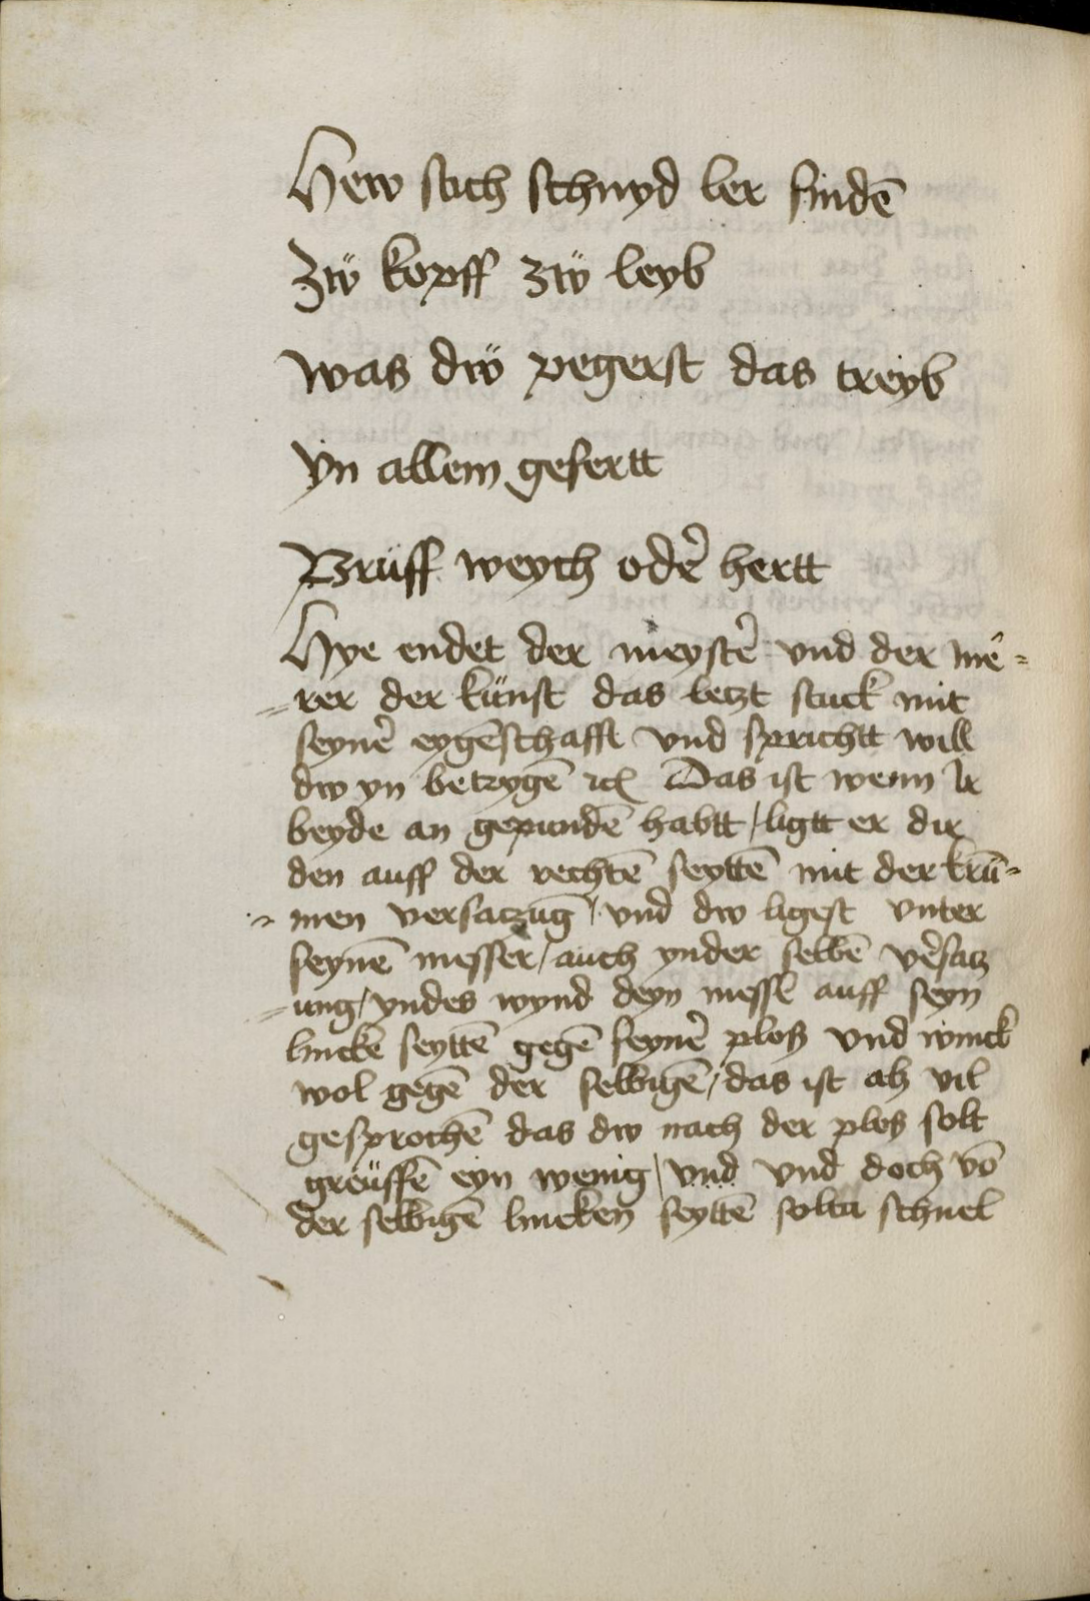 Hew stich schnyd ler findē
Zw̎ kopff zw̎ leyb
was dw̎ pegerst das treyb
yn allem gefertt
Prüff weych oder̃ hertt
Hye endet der meyster̃ vnd der me᷑=
=rer der künst das letzt stuck mit
seyner̃ eygēschafft vnd sprichtt will
dw yn betrygē ⁊c̃ Das ist wenn Ir
beyde an gepundē habtt / ligtt er dir
den auff der rechtē seyttē mit der krū=
=men versatzūg / vnd dw ligest vnter
seynē messer / auch ynder selbē ver̃satz
=ung / yndes wynd deyn messer̃ auff seyn
linckē seyttē gegē seyner̃ ploß vnd winck
wol gegē der selbigē / das ist alß vil
gesprochē das dw nach der ploß solt
greüffē eyn wenig / vnd vnd doch vō
der selbigē lincken seyttē soltu schnel